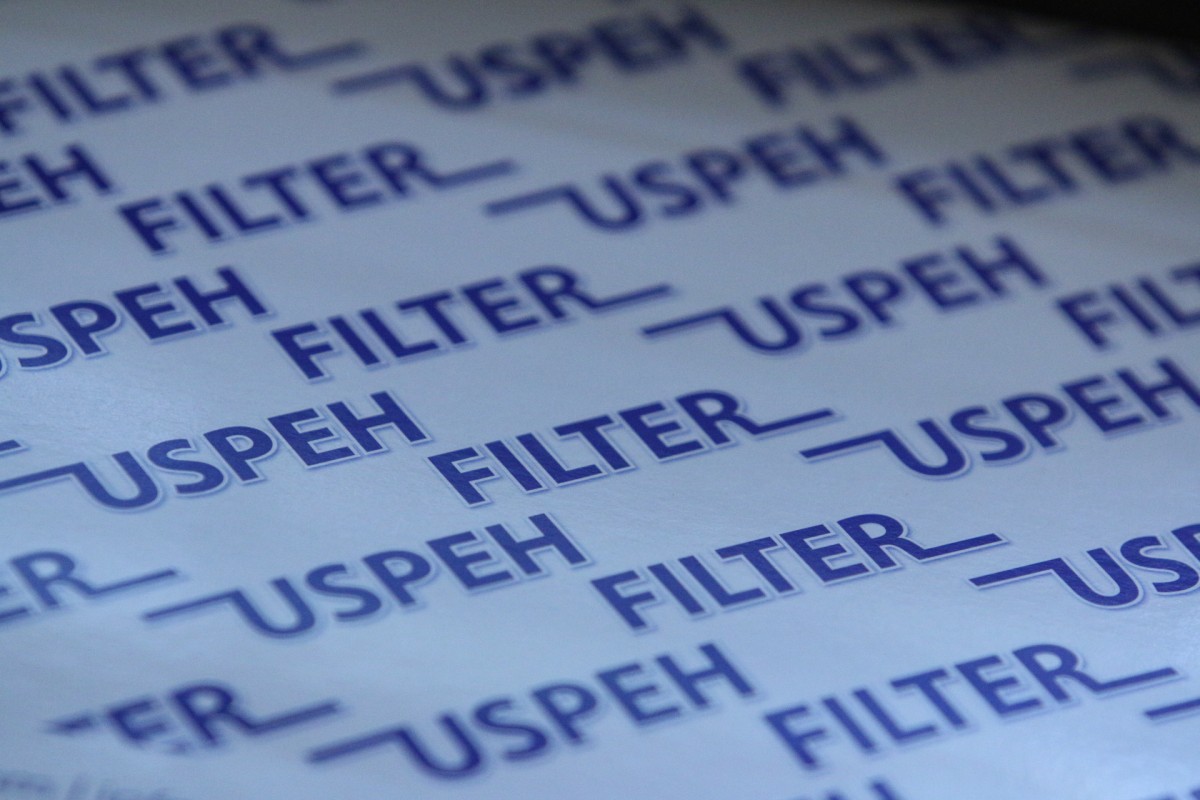 FILTER USPEH FILTER
EH FILTER USPEH FILTER
USPEH FILTER USPEH FILT
USPEH FILTER USPEH
ER USPEH FILTER USP
ER USPEH FILTER